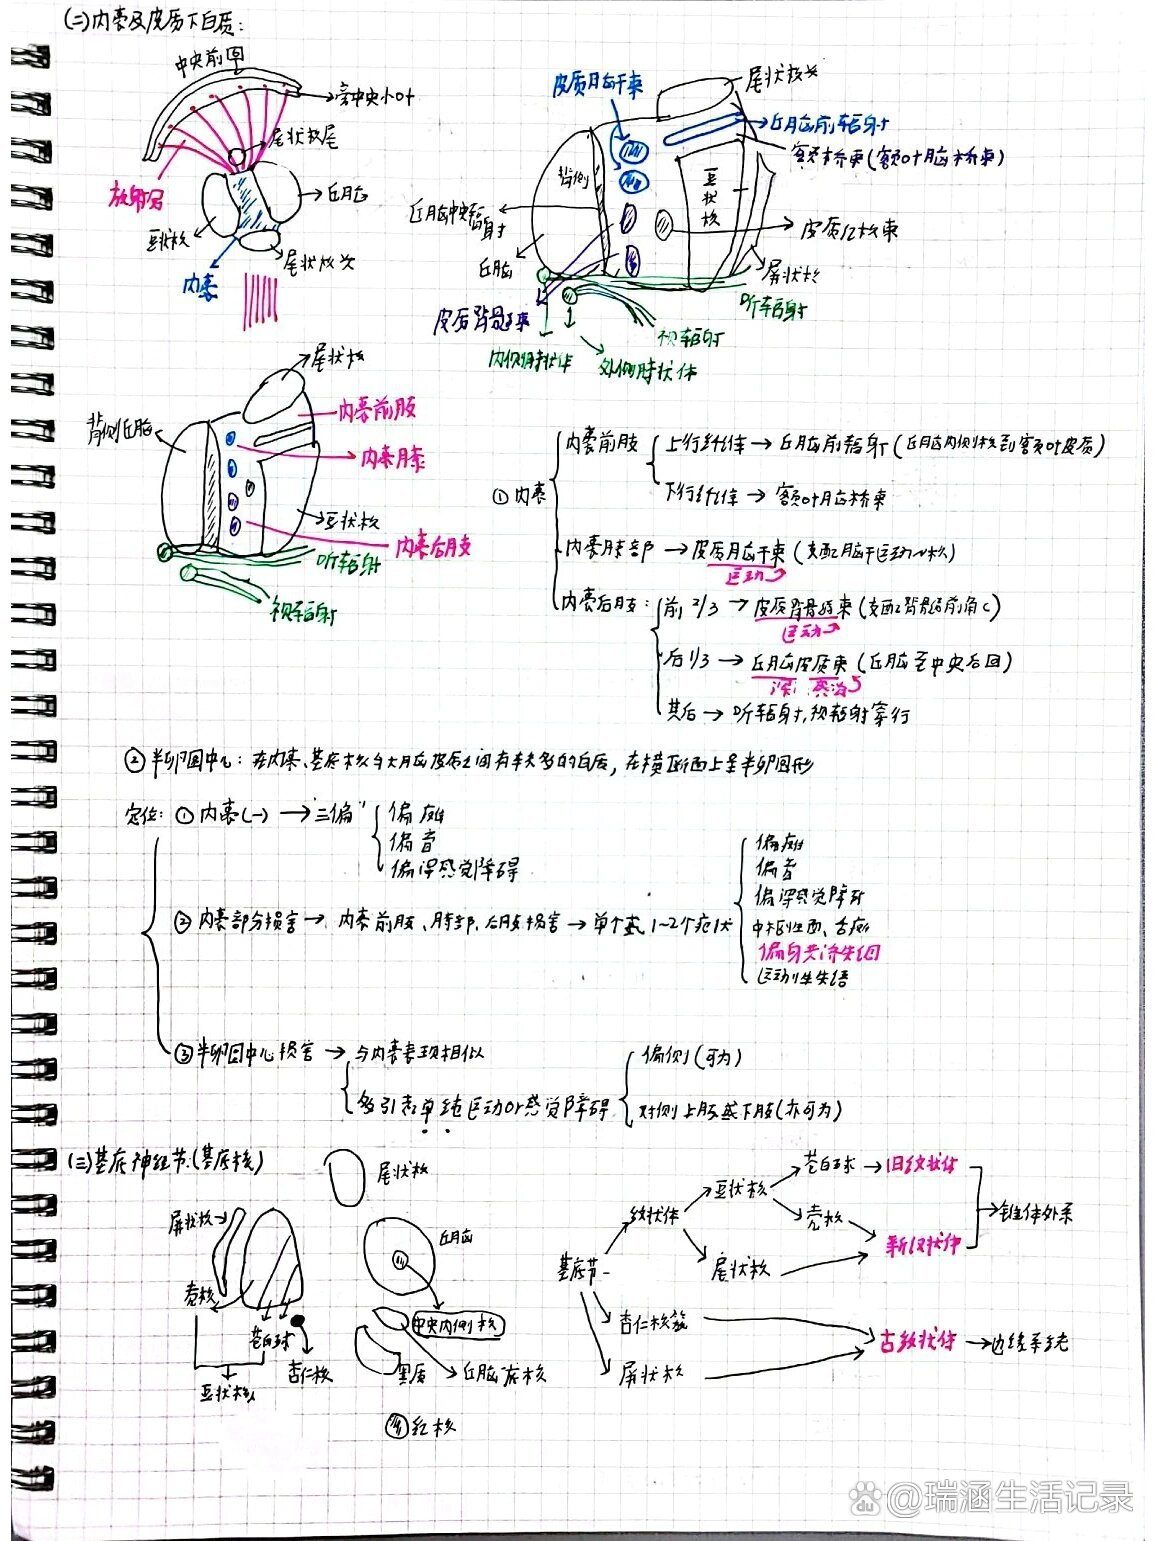 (二)内囊及皮质下白质:
中央前回
旁中央小叶
尾状核尾
放射冠
丘脑
豆状核
尾状核头
内囊
皮质脑干束
尾状核头
丘脑前辐射
额桥束(额叶脑桥束)
背侧
豆状核
丘脑中央辐射
皮质红核束
丘脑
屏状核
听辐射
皮质脊髓束
视辐射
内侧膝状体
外侧膝状体
尾状核
背侧丘脑
内囊前肢
内囊膝
豆状核
内囊后肢
听辐射
视辐射
①内囊
内囊前肢
上行纤维→丘脑前辐射(丘脑内侧核到额叶皮质)
下行纤维→额叶脑桥束
内囊膝部→皮质脑干束(支配脑干运动N核)
运动
内囊后肢:前2/3→皮质脊髓束(支配脊髓前角C)
运动
后1/3→丘脑皮质束(丘脑至中央后回)
深 共济
其后→听辐射,视辐射穿行
②半卵圆中心:在内囊、基底核与大脑皮质之间有许多的白质,在横断面上呈半卵圆形
定位:①内囊(一)→"三偏"
偏瘫
偏盲
偏深感觉障碍
②内囊部分损害→内囊前肢、膝部、后肢损害→单个或1~2个症状
偏瘫
偏盲
偏深感觉障碍
中枢性面、舌瘫
偏身共济失调
运动性失语
③半卵圆中心损害→与内囊表现相似
多引起单纯运动or感觉障碍
偏侧(可为)
对侧上肢或下肢(亦可为)
(三)基底神经节.(基底核)
尾状核
屏状核
丘脑
壳核
苍白球
杏仁核
豆状核
中央内侧核
黑质
丘脑底核
红核
基底节
纹状体
豆状核
苍白球→旧纹状体
壳核
新纹状体
尾状核
锥体外系
杏仁核簇
屏状核
古纹状体→边缘系统
@瑞涵生活记录